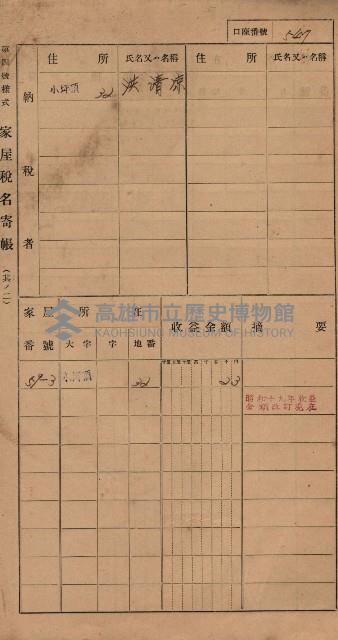 口座番號 547
第四號樣式 家屋稅名寄帳 (其ノ二)
納稅者
住所 氏名又ハ名稱 住所 氏名又ハ名稱
小坪頂 22 洪清凉
高雄市立歷史博物館
KAOHSIUNG MUSEUM OF HISTORY
家屋所在 收益金額 摘要
番號 大字 字 地番
57-3 小坪頂 22 23
昭和十九年收益
金額改訂現在